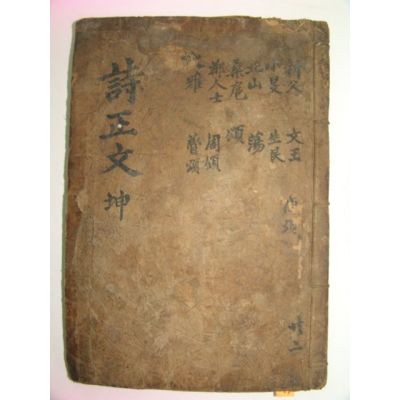 祈父 文王
小旻 生民
北山 蕩
桑扈 頌
都人士 周頌
雅 魯頌
詩正文 坤
共二